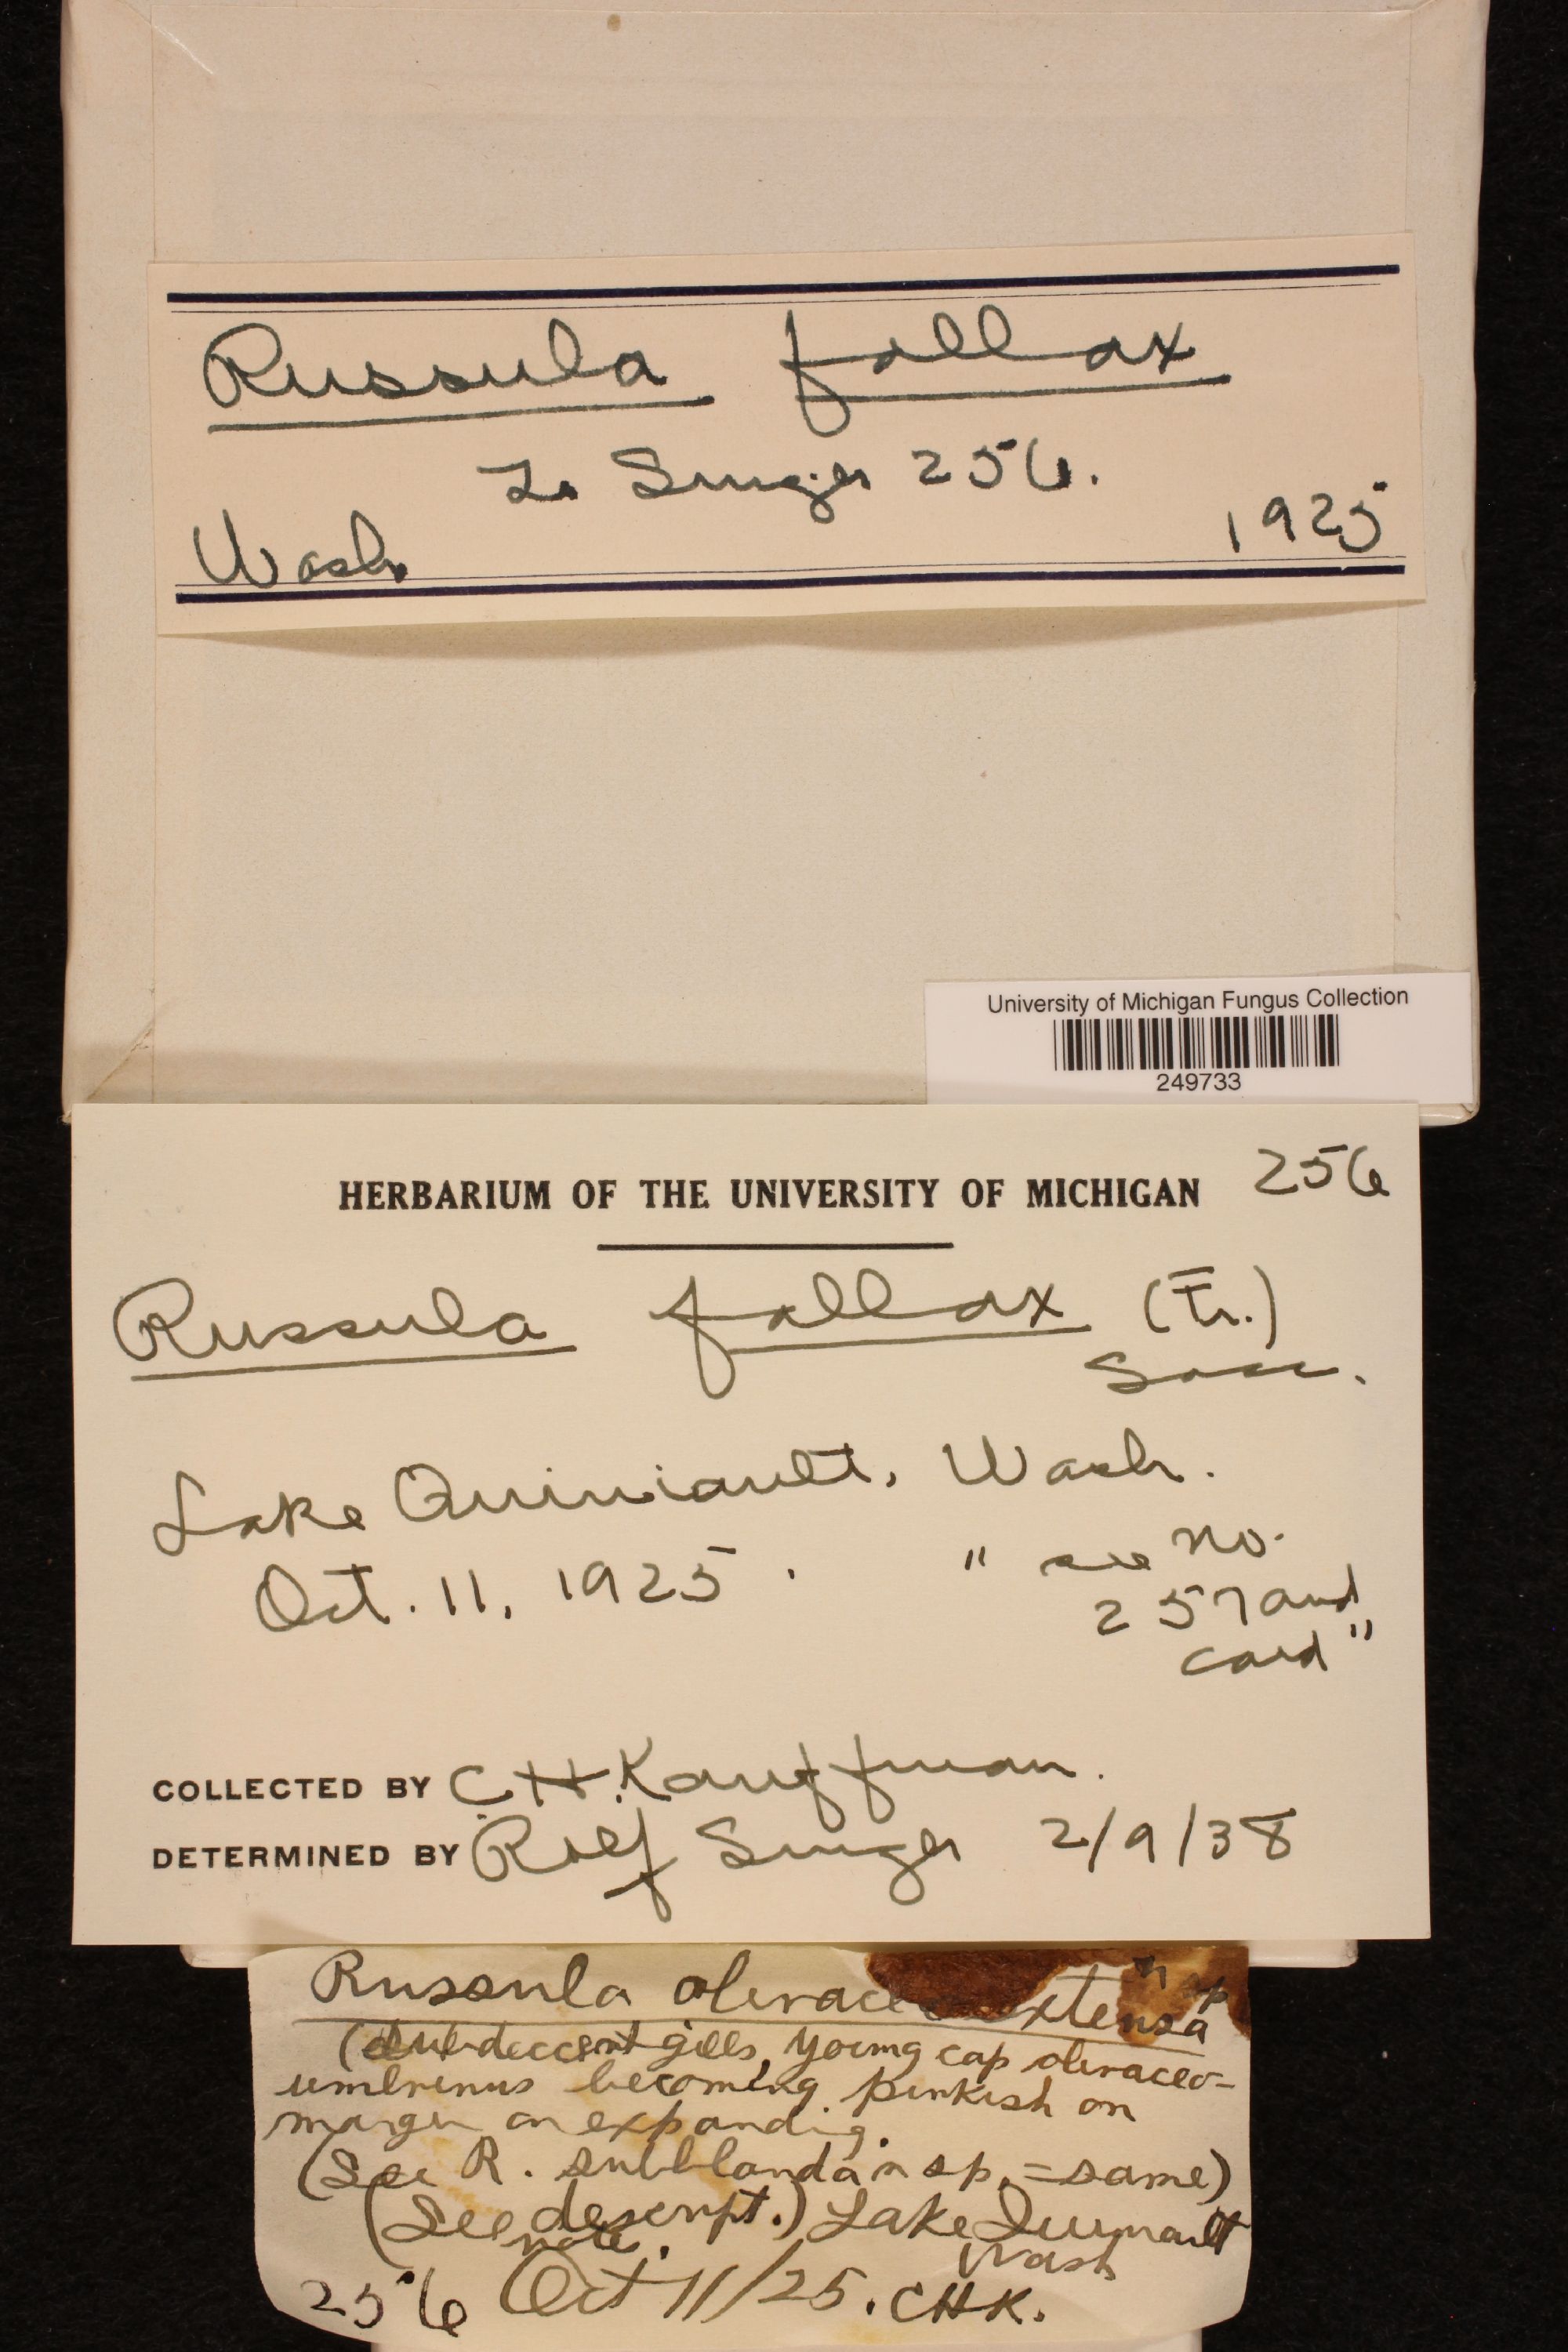 Russula fallax
Singer 256.
Wash. 1925
University of Michigan Fungus Collection
249733
HERBARIUM OF THE UNIVERSITY OF MICHIGAN 256
Russula fallax (Fr.)
Sacc.
Lake Quiniault, Wash.
Oct. 11, 1925. " see no.
257 and
card"
COLLECTED BY C.H.Kauffman.
DETERMINED BY Rolf Singer 2/9/38
Russula extensa n sp
gills, young cap olivaceo-
umbrinus becoming pinkish on
margin on expanding.
(See R. subblanda n sp. = same)
(See descript.) Lake
note. Wash
256 Oct 11/25. CHK.